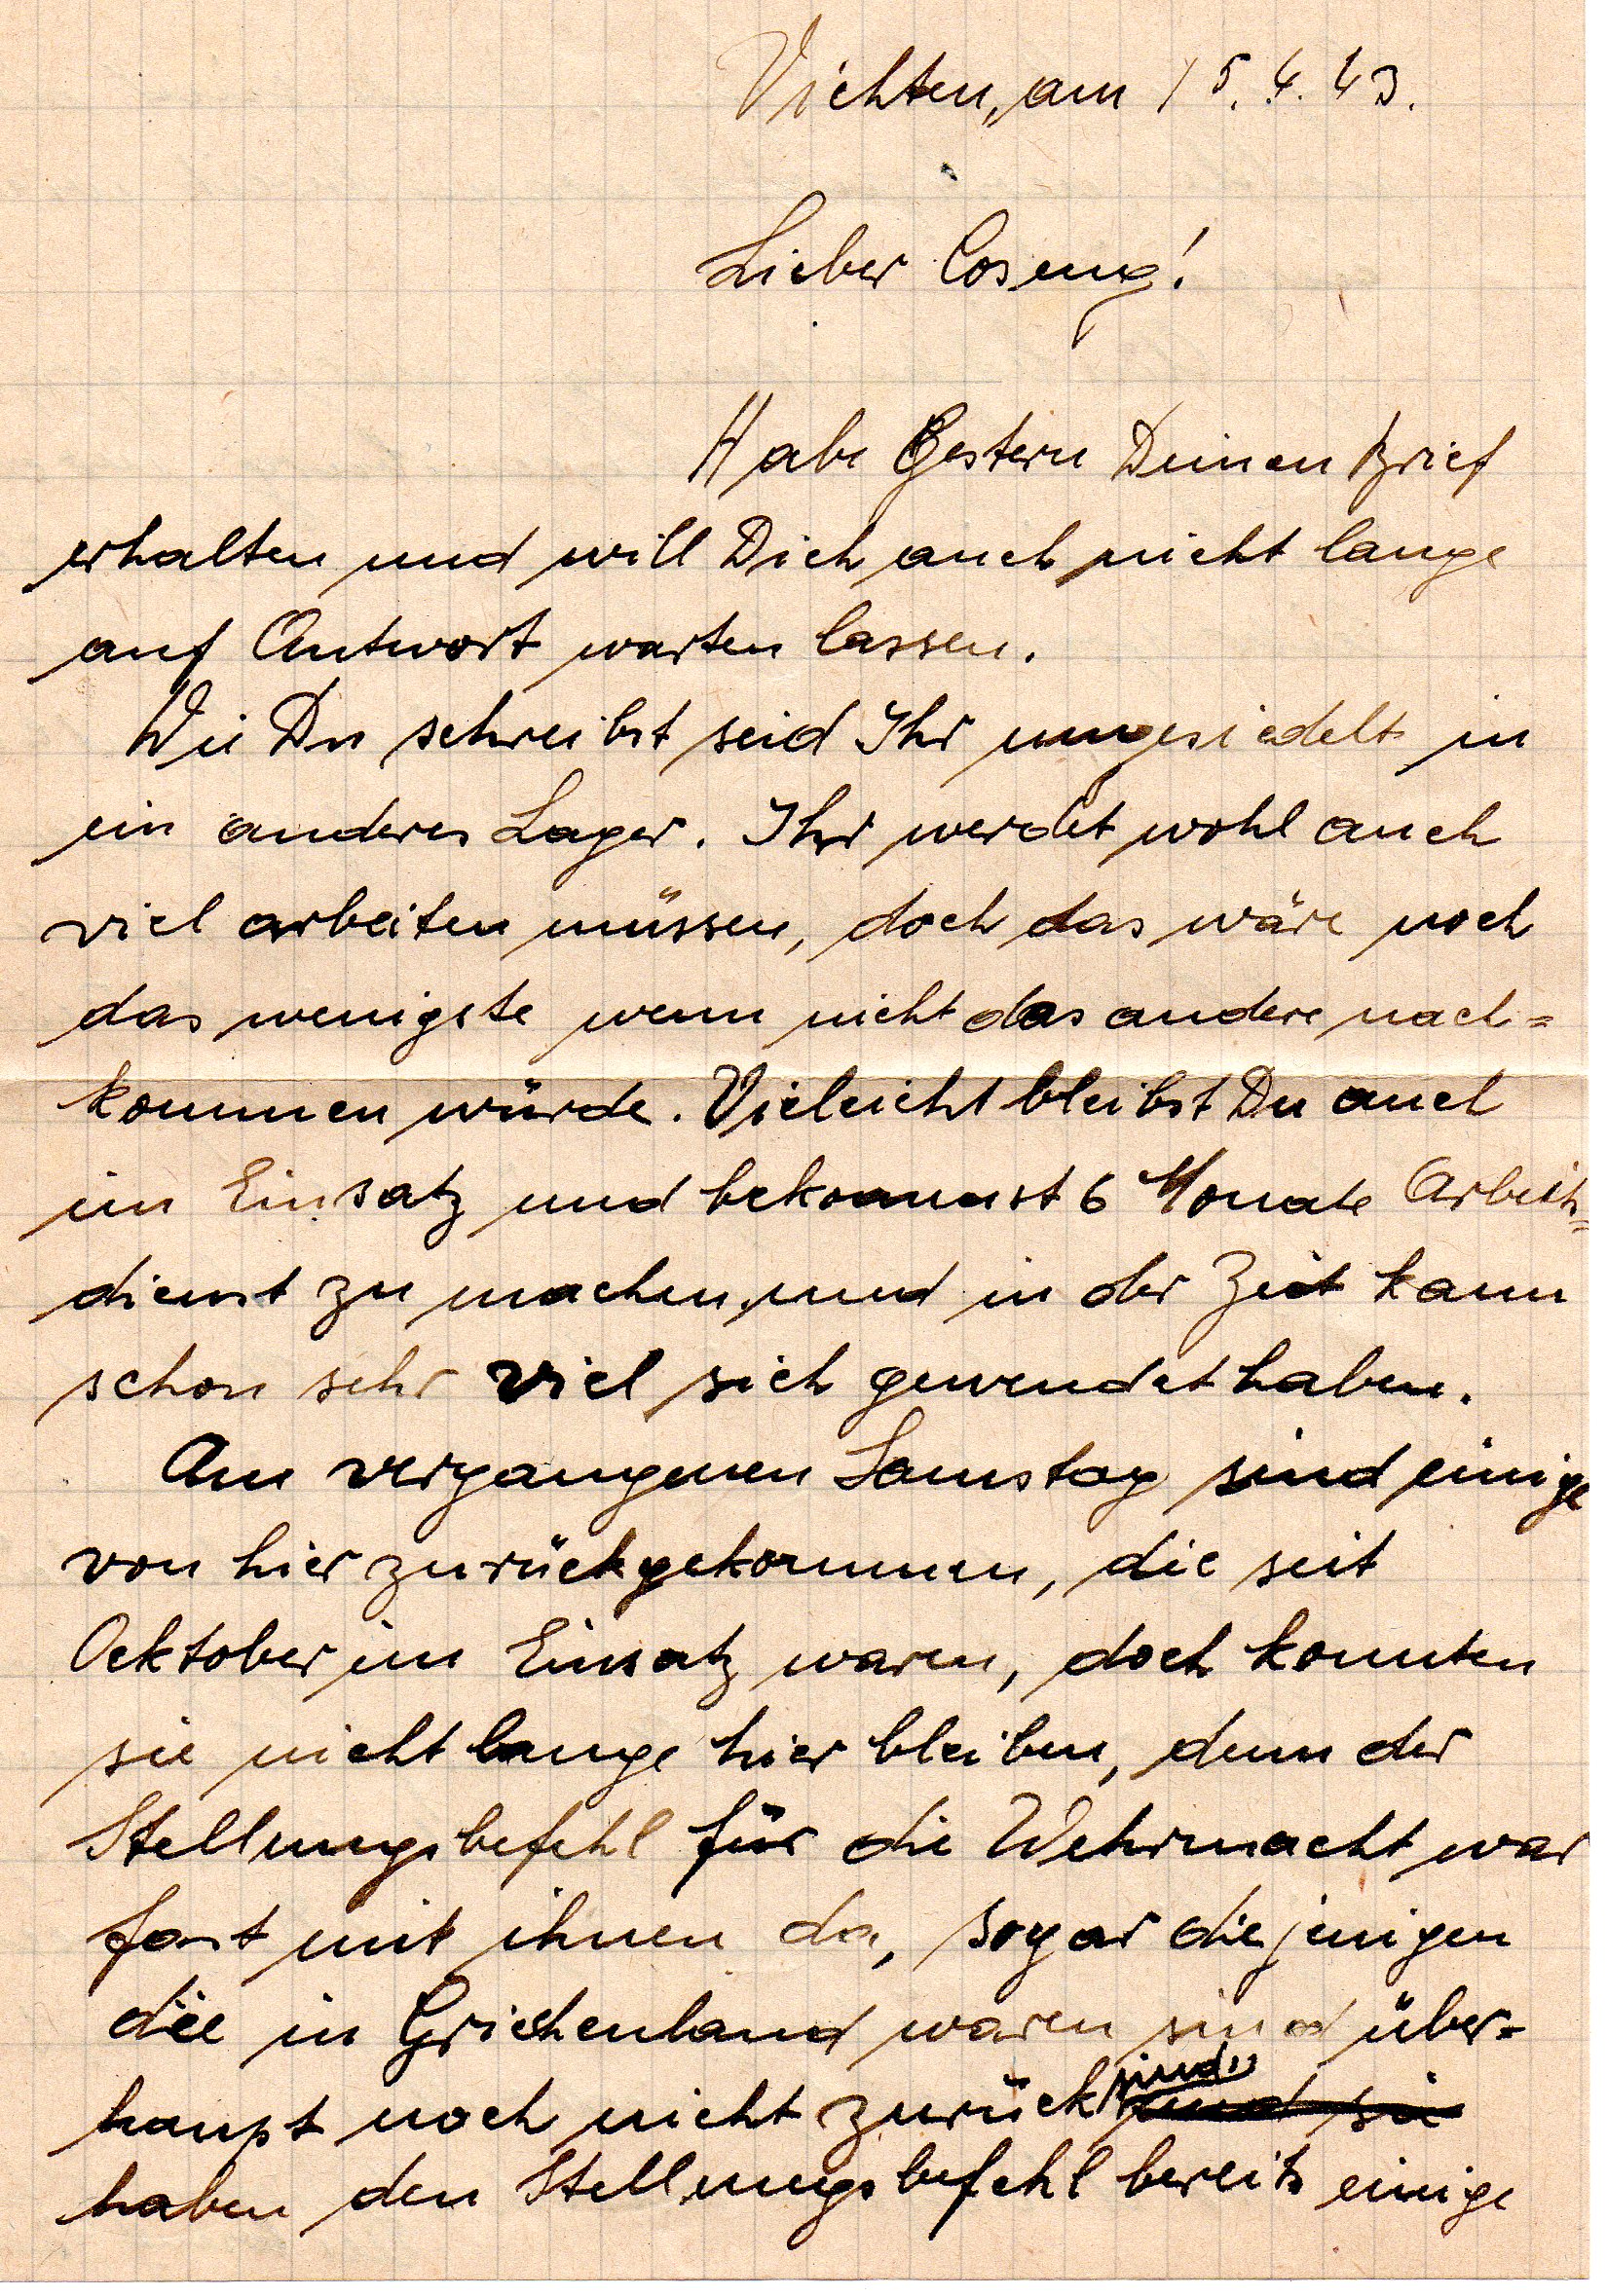 Vichten, am 15.4.43.
Lieber Coseng!
Habe Gestern Deinen Brief
erhalten und will Dich auch nicht lange
auf Antwort warten lassen.
Wie Du schreibst seid Ihr umgesiedelt in
ein anderes Lager. Ihr werdet wohl auch
viel arbeiten müssen, doch das wäre noch
das wenigste wenn nicht das andere nach=
kommen würde. Vieleicht bleibst Du auch
im Einsatz und bekommst 6 Monate Arbeits=
dienst zu machen, und in der Zeit kann
schon sehr viel sich gewendet haben.
Am vergangenen Samstag sind einige
von hier zurückgekommen, die seit
Ocktober im Einsatz waren, doch konnten
sie nicht lange hier bleiben, denn der
Stellungsbefehl für die Wehrmacht war
fast mit ihnen da, sogar diejenigen
die in Griechenland waren sind über=
haupt noch nicht zurück sind
haben den Stellungsbefehl bereits einige